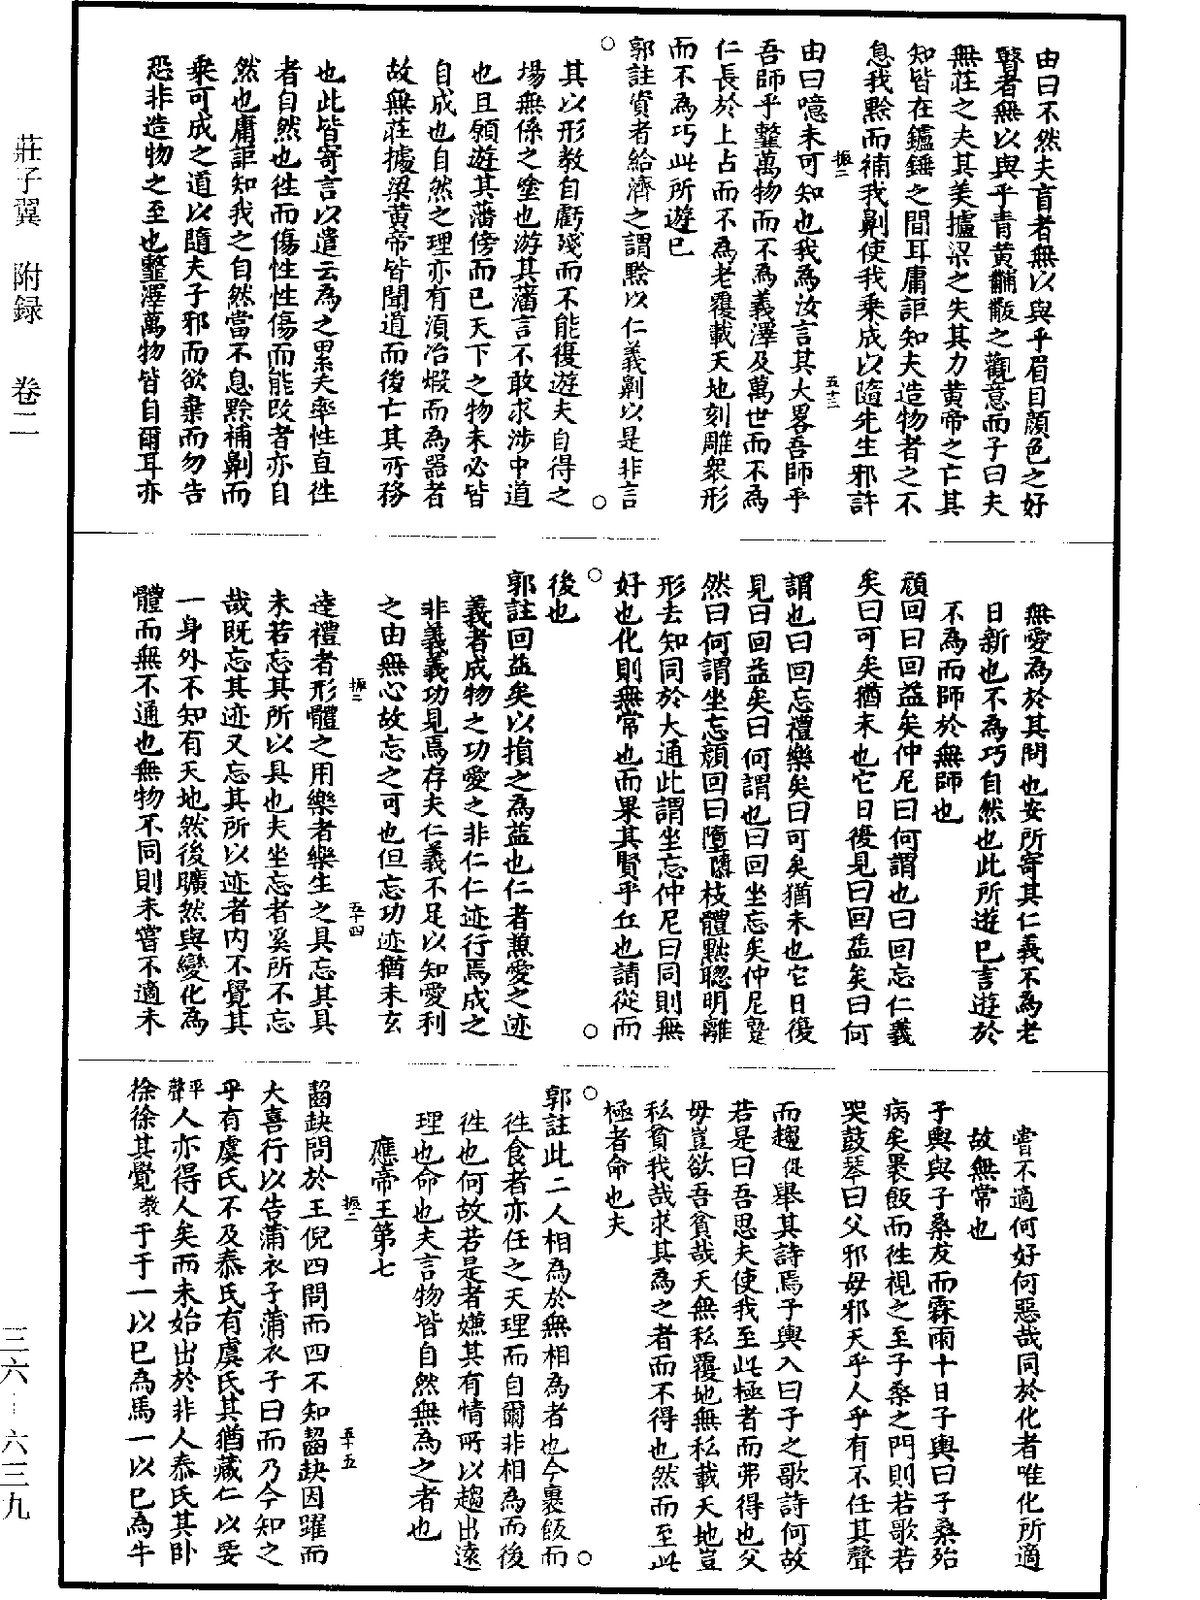 莊子翼　附録　卷二
三六—六三九
由曰不然夫盲者無以與乎眉目顔色之好
瞽者無以與乎青黄黼黻之觀意而子曰夫
無莊之夫其美據梁之失其力黄帝之亡其
知皆在鑪錘之間耳庸詎知夫造物者之不
息我黥而補我劓使我乘成以隨先生邪許
由曰噫未可知也我為汝言其大畧吾師乎
吾師乎䪡萬物而不為義澤及萬世而不為
仁長於上占而不為老覆載天地刻雕衆形
而不為巧此所遊已
郭註資者給濟之謂黥以仁義劓以是非言
其以形教自虧殘而不能復遊夫自得之
場無係之塗也游其藩言不敢求涉中道
也且願遊其藩傍而已天下之物未必皆
自成也自然之理亦有須冶煅而為器者
故無莊據梁黄帝皆聞道而後亡其所務
也此皆寄言以遣云為之累夫率性直徃
者自然也徃而傷性性傷而能改者亦自
然也庸詎知我之自然當不息黥補劓而
乘可成之道以隨夫子邪而欲棄而勿告
恐非造物之至也䪡澤萬物皆自爾耳亦
振二
五十三
無愛為於其間也安所寄其仁義不為老
日新也不為巧自然也此所遊已言遊於
不為而師於無師也
顔回曰回益矣仲尼曰何謂也曰回忘仁義
矣曰可矣猶未也它日復見曰回益矣曰何
謂也曰回忘禮樂矣曰可矣猶未也它日復
見曰回益矣曰何謂也曰回坐忘矣仲尼蹵
然曰何謂坐忘顔回曰墮隳枝體黜聰明離
形去知同於大通此謂坐忘仲尼曰同則無
好也化則無常也而果其賢乎丘也請從而
後也
郭註回益矣以損之為益也仁者兼愛之迹
義者成物之功愛之非仁仁迹行焉成之
非義義功見焉存夫仁義不足以知愛利
之由無心故忘之可也但忘功迹猶未玄
逹禮者形體之用樂者樂生之具忘其具
未若忘其所以具也夫坐忘者奚所不忘
哉既忘其迹又忘其所以迹者内不覺其
一身外不知有天地然後曠然與變化為
體而無不通也無物不同則未嘗不適未
振二
五十四
嘗不適何好何惡哉同於化者唯化所適
故無常也
子輿與子桑友而霖雨十日子輿曰子桑殆
病矣褁飯而徃視之至子桑之門則若歌若
哭鼓琴曰父邪母邪天乎人乎有不任其聲
而趨促舉其詩焉子輿入曰子之歌詩何故
若是曰吾思夫使我至此極者而弗得也父
毋豈欲吾貧哉天無私覆地無私載天地豈
私貧我哉求其為之者而不得也然而至此
極者命也夫
郭註此二人相為於無相為者也今裹飯而
徃食者亦任之天理而自爾非相為而後
徃也何故若是者嫌其有情所以趨出遠
理也命也夫言物皆自然無為之者也
應帝王第七
齧缺問於王倪四問而四不知齧缺因躍而
大喜行以告蒲衣子蒲衣子曰而乃今知之
乎有虞氏不及泰氏有虞氏其猶藏仁以要
平聲人亦得人矣而未始出於非人泰氏其卧
徐徐其覺教于于一以已為馬一以已為牛
振二
五十五